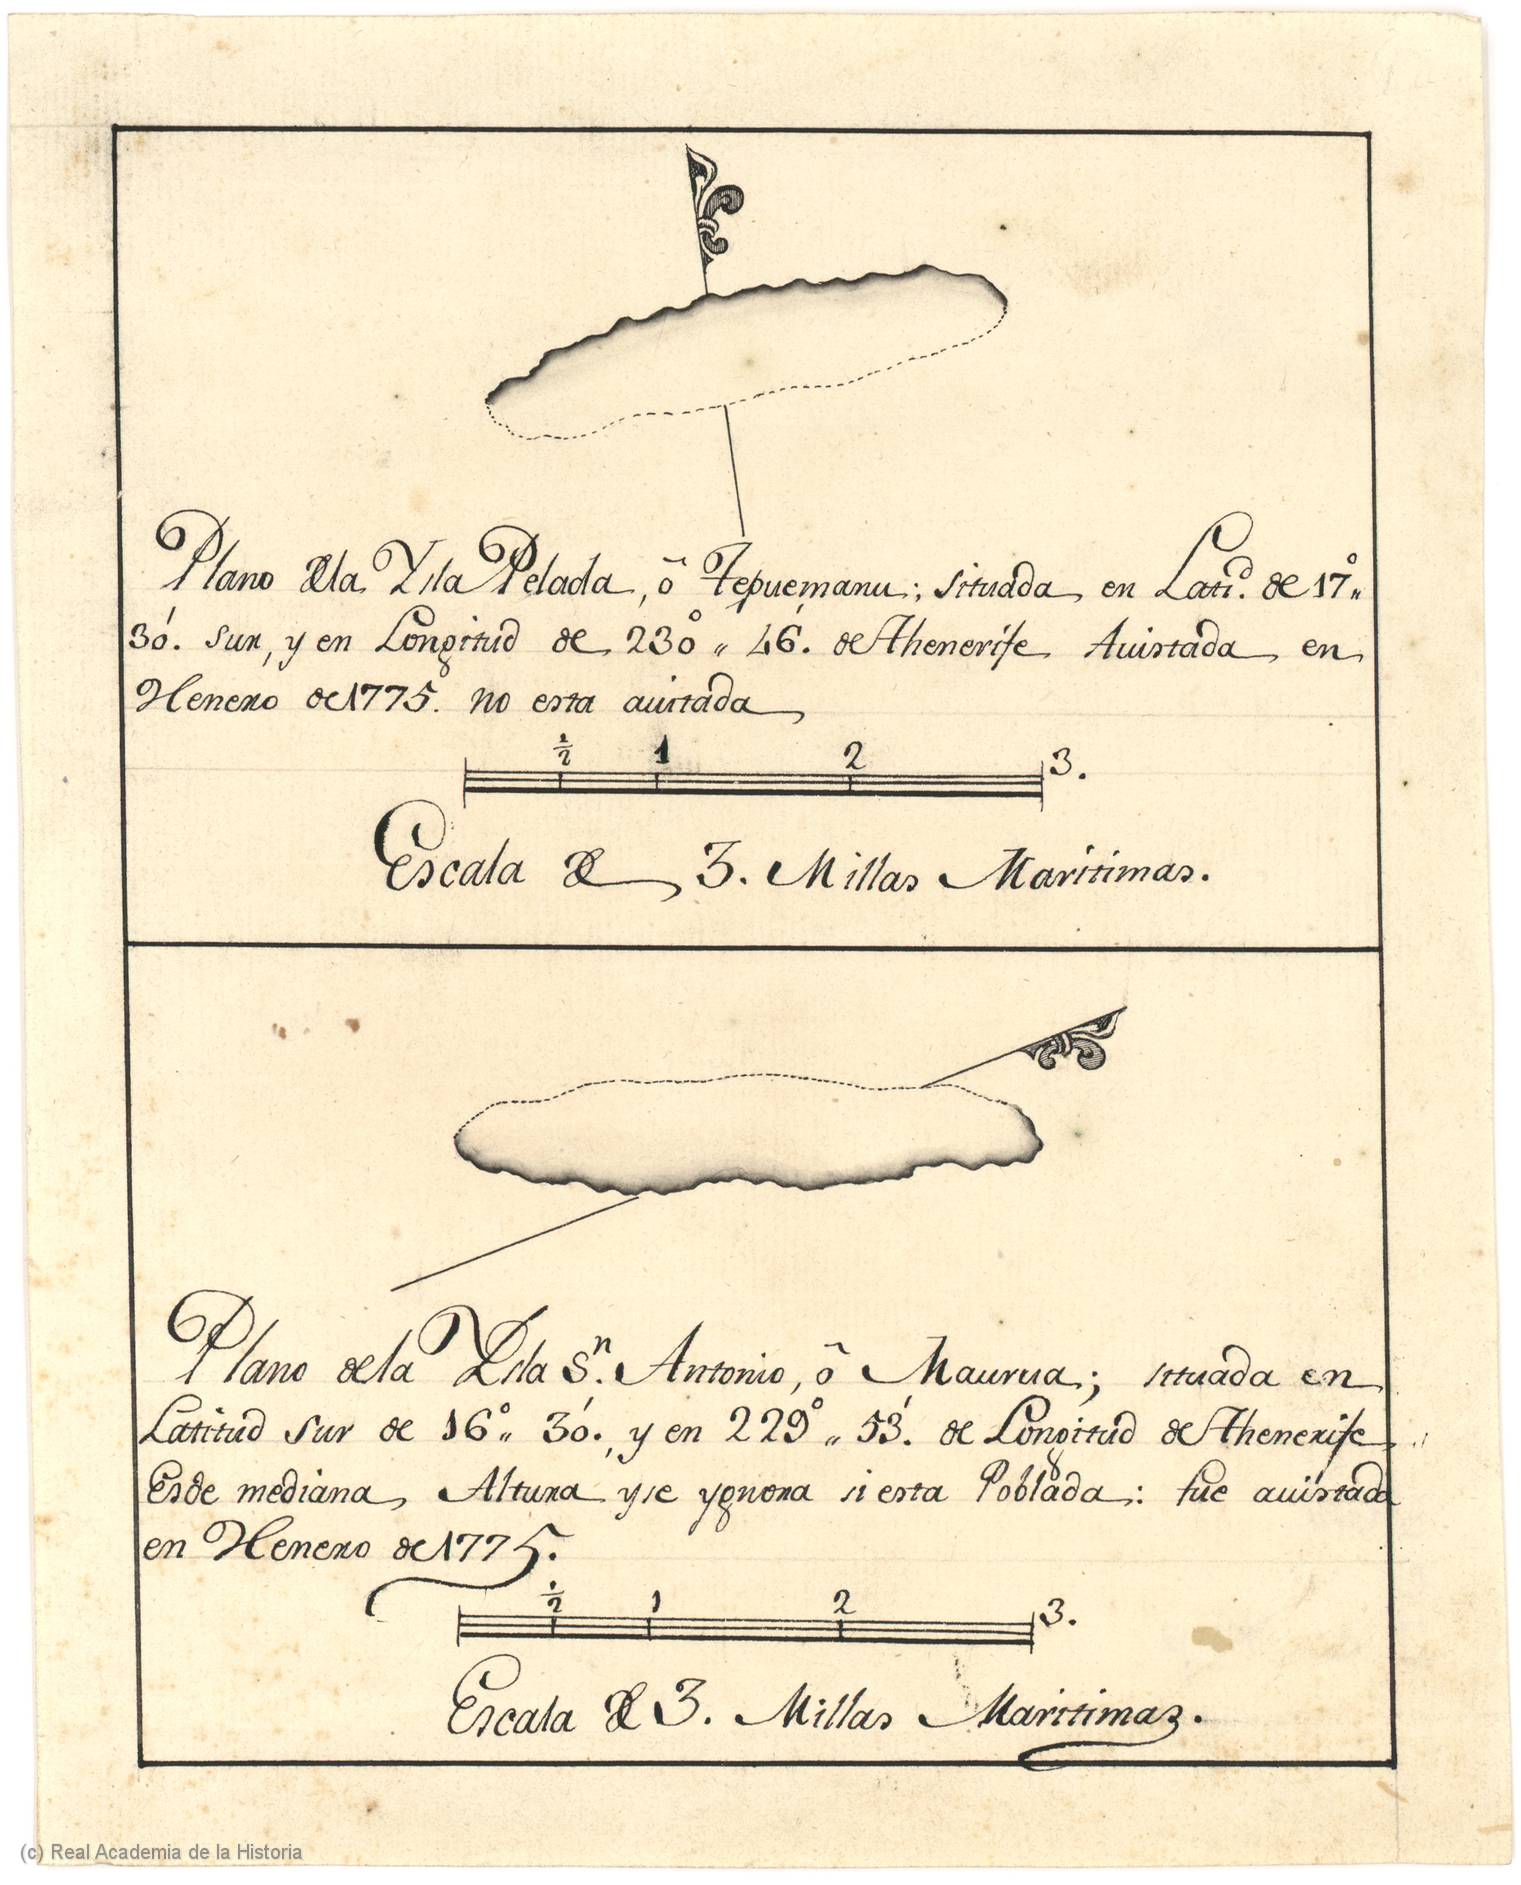 Plano dela Ysla Pelada, ô Tepuemanu; situada en Latid. de 17°„
30'. Sur, y en Longitud de 230° „ 46'. de Thenerife Auistada en
Henero de 1775. no esta auistada
½ 1 2 3.
Escala de 3. Millas Maritimas.
Plano dela Ysla Sn. Antonio, ô Maurua; situada en
Latitud Sur de 16°„ 30'., y en 229° „ 53'. de Longitud de Thenerife
Esde mediana Altura yse ygnora si esta Poblada: fue auistada
en Henero de 1775.
½ 1 2 3.
Escala de 3. Millas Maritimas.
(c) Real Academia de la Historia